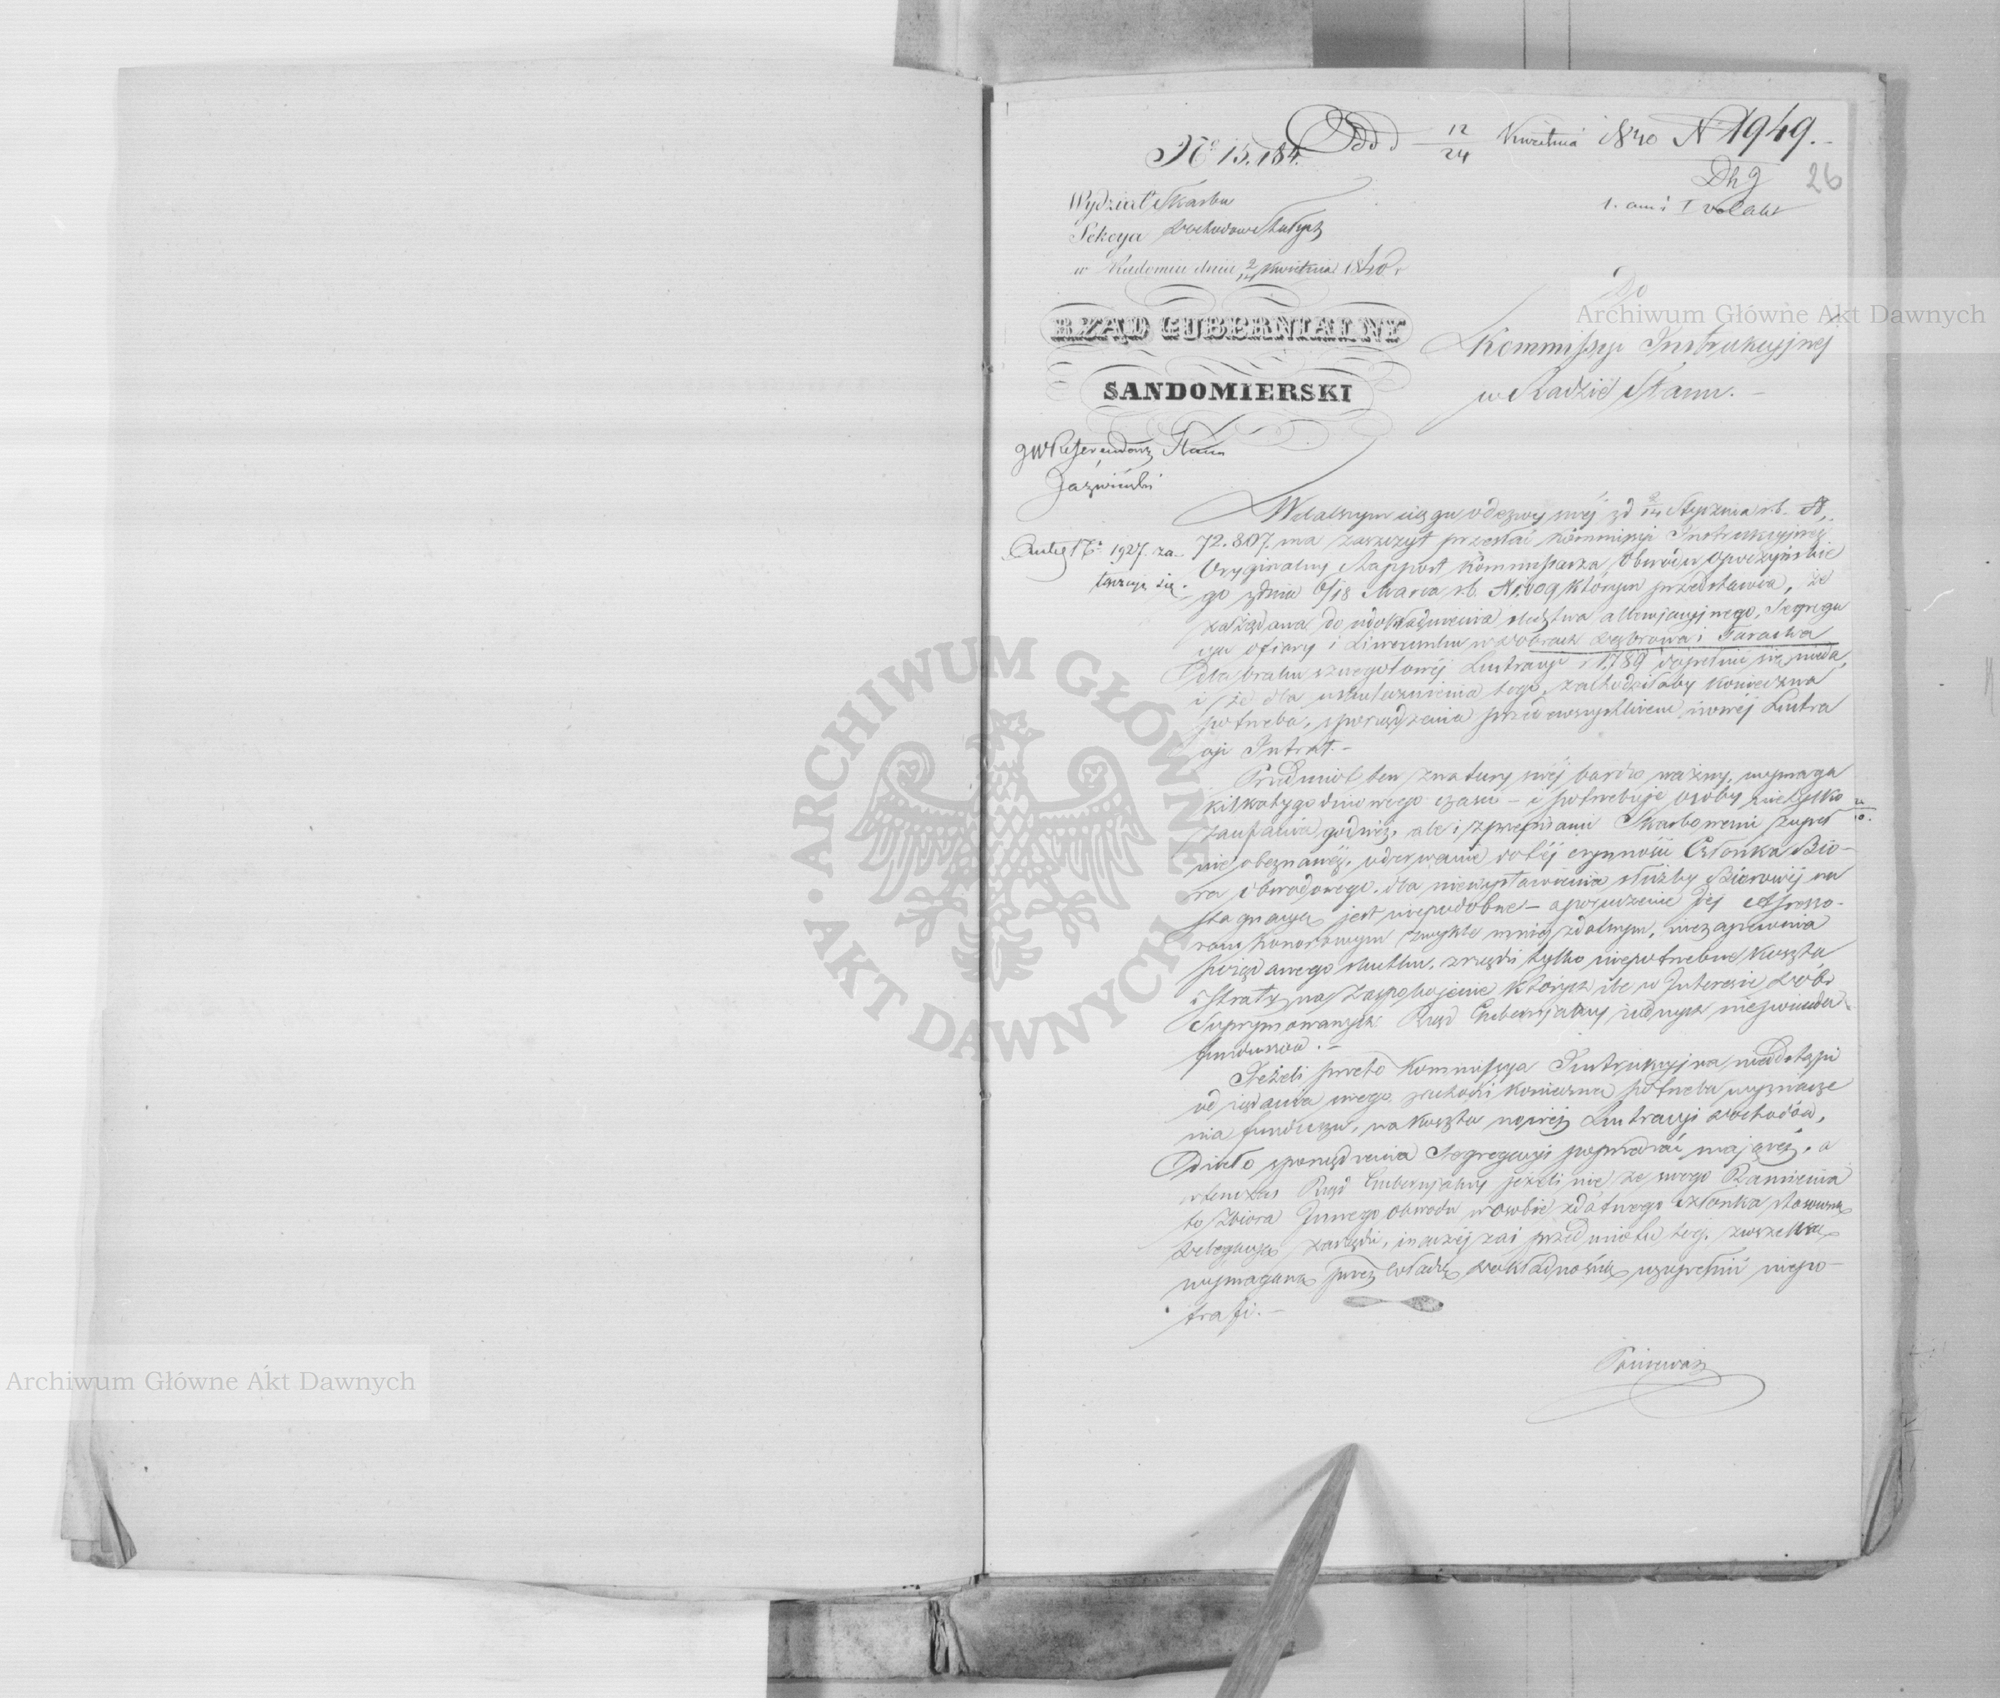 12/24 Kwietnia 1840 N 1949.
No 15.184.
26
Wydział Skarbu
Sekcya Dochodów Stałych
w Radomiu dnia 2/14 Kwietnia 1840 r
RZĄD GUBERNIALNY
SANDOMIERSKI
Do
Kommissyi Instrukcyjnej
w Radzie Stanu.
JW Referendarz Stanu
Jaźwiński
Akta No 1927. za-
łączają się.
W dalszym ciągu odezwy swej zd 2/14 Stycznia r.b. N.
72.807. ma zaszczyt przesłać Kommissyi Instrukcyjnej
Oryginalny Rapport Kommissarza Obwodu Opoczyńskie
go zdnia 6/18 Marca r.b. N. 1009 którym przedstawia, że
zażądana do udokładnienia śledztwa allewjacyjnego, Segrega
cya ofiary i Liwerunku w dobrach Dąbrowa i Taraska
dla braku szczegółowej Lustracyi z 1789 dopełnić się nieda,
i że dla uskutecznienia tego, zachodziłaby konieczna
potrzeba, sporządzenia przedewszystkiem nowej Lustra
cyi Intrat.-
Przedmiot ten z natury swej bardzo ważny, wymaga
kilkotygodniowego czasu - i potrzebuje osoby nietylko
zaufania godnej, ale i z przepisami Skarbowemi zupeł
nie obeznanej, oderwanie do tej czynności Członka Bió-
ra Obwodowego, dla niewystawienia służby Biórowej na
stagnacyą jest niepodobne - a poruczenie jej Assesso-
rom honorowym zwykle mniej zdolnym, niezapewnia
pożądanego skutku, zrządzi tylko niepotrzebne koszta
i straty, na zaspokojenie których ile w Interesie dóbr
Suprymowanych Rząd Gubernjalny żadnych nieposiada
funduszów.-
Jeżeli przeto Kommissya Instrukcyjna nieodstąpi
od żądania swego, zachodzi konieczna potrzeba wyznacze
nia funduszu, na koszta nowej Lustracyi dochodów,
Dzieło sporządzenia Segregacyi poprzedzać mającej, a
wtenczas Rząd Gubernjalny jeżeli nie ze swego Ramienia
to z Bióra Innego obwodu w osobie zdatnego Członka stosowną
Delegacyą zarządzi, inaczej zaś przedmiotu tej, zwszelką
wymaganą przez Władzę dokładnością uzupełnić niepo-
trafi.-
Archiwum Główne Akt Dawnych
Archiwum Główne Akt Dawnych
ARCHIWUM GŁÓWNE AKT DAWNYCH